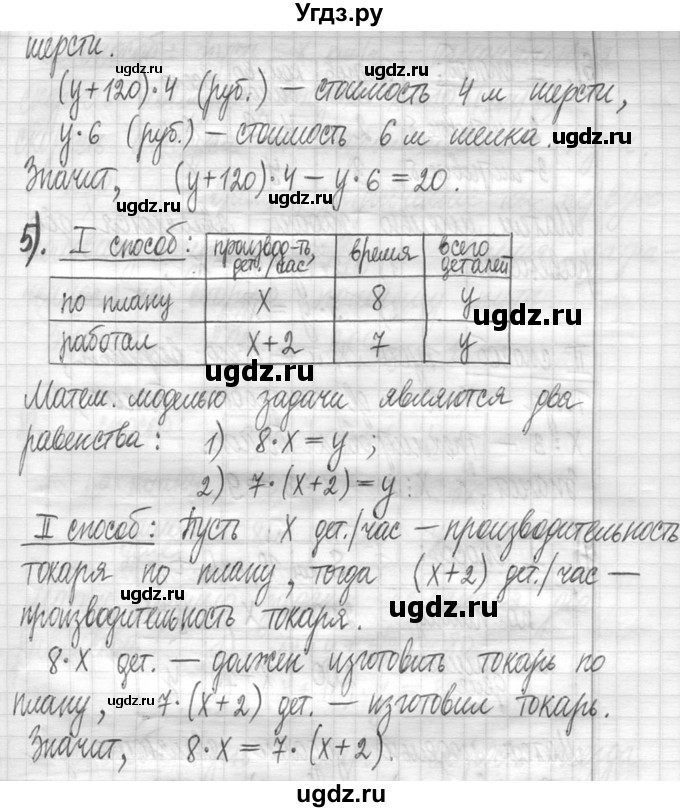 Угдз.ру
шерсти.
(y+120)·4 (руб.) — стоимость 4 м шерсти,
y·6 (руб.) — стоимость 6 м шелка.
Значит, (y+120)·4 — y·6 = 20.
5). I способ: производ-ть, дет./час время всего деталей
по плану x 8 y
работал x+2 7 y
Матем. моделью задачи являются два
равенства: 1) 8·x = y;
2) 7·(x+2) = y.
II способ: Пусть x дет./час — производительность
токаря по плану, тогда (x+2) дет./час —
производительность токаря.
8·x дет. — должен изготовить токарь по
плану, 7·(x+2) дет. — изготовил токарь.
Значит, 8·x = 7·(x+2).
ugdz.ru
ugdz.ru
ugdz.ru
ugdz.ru
ugdz.ru
ugdz.ru
ugdz.ru
ugdz.ru
ugdz.ru
ugdz.ru
ugdz.ru
ugdz.ru
ugdz.ru
ugdz.ru